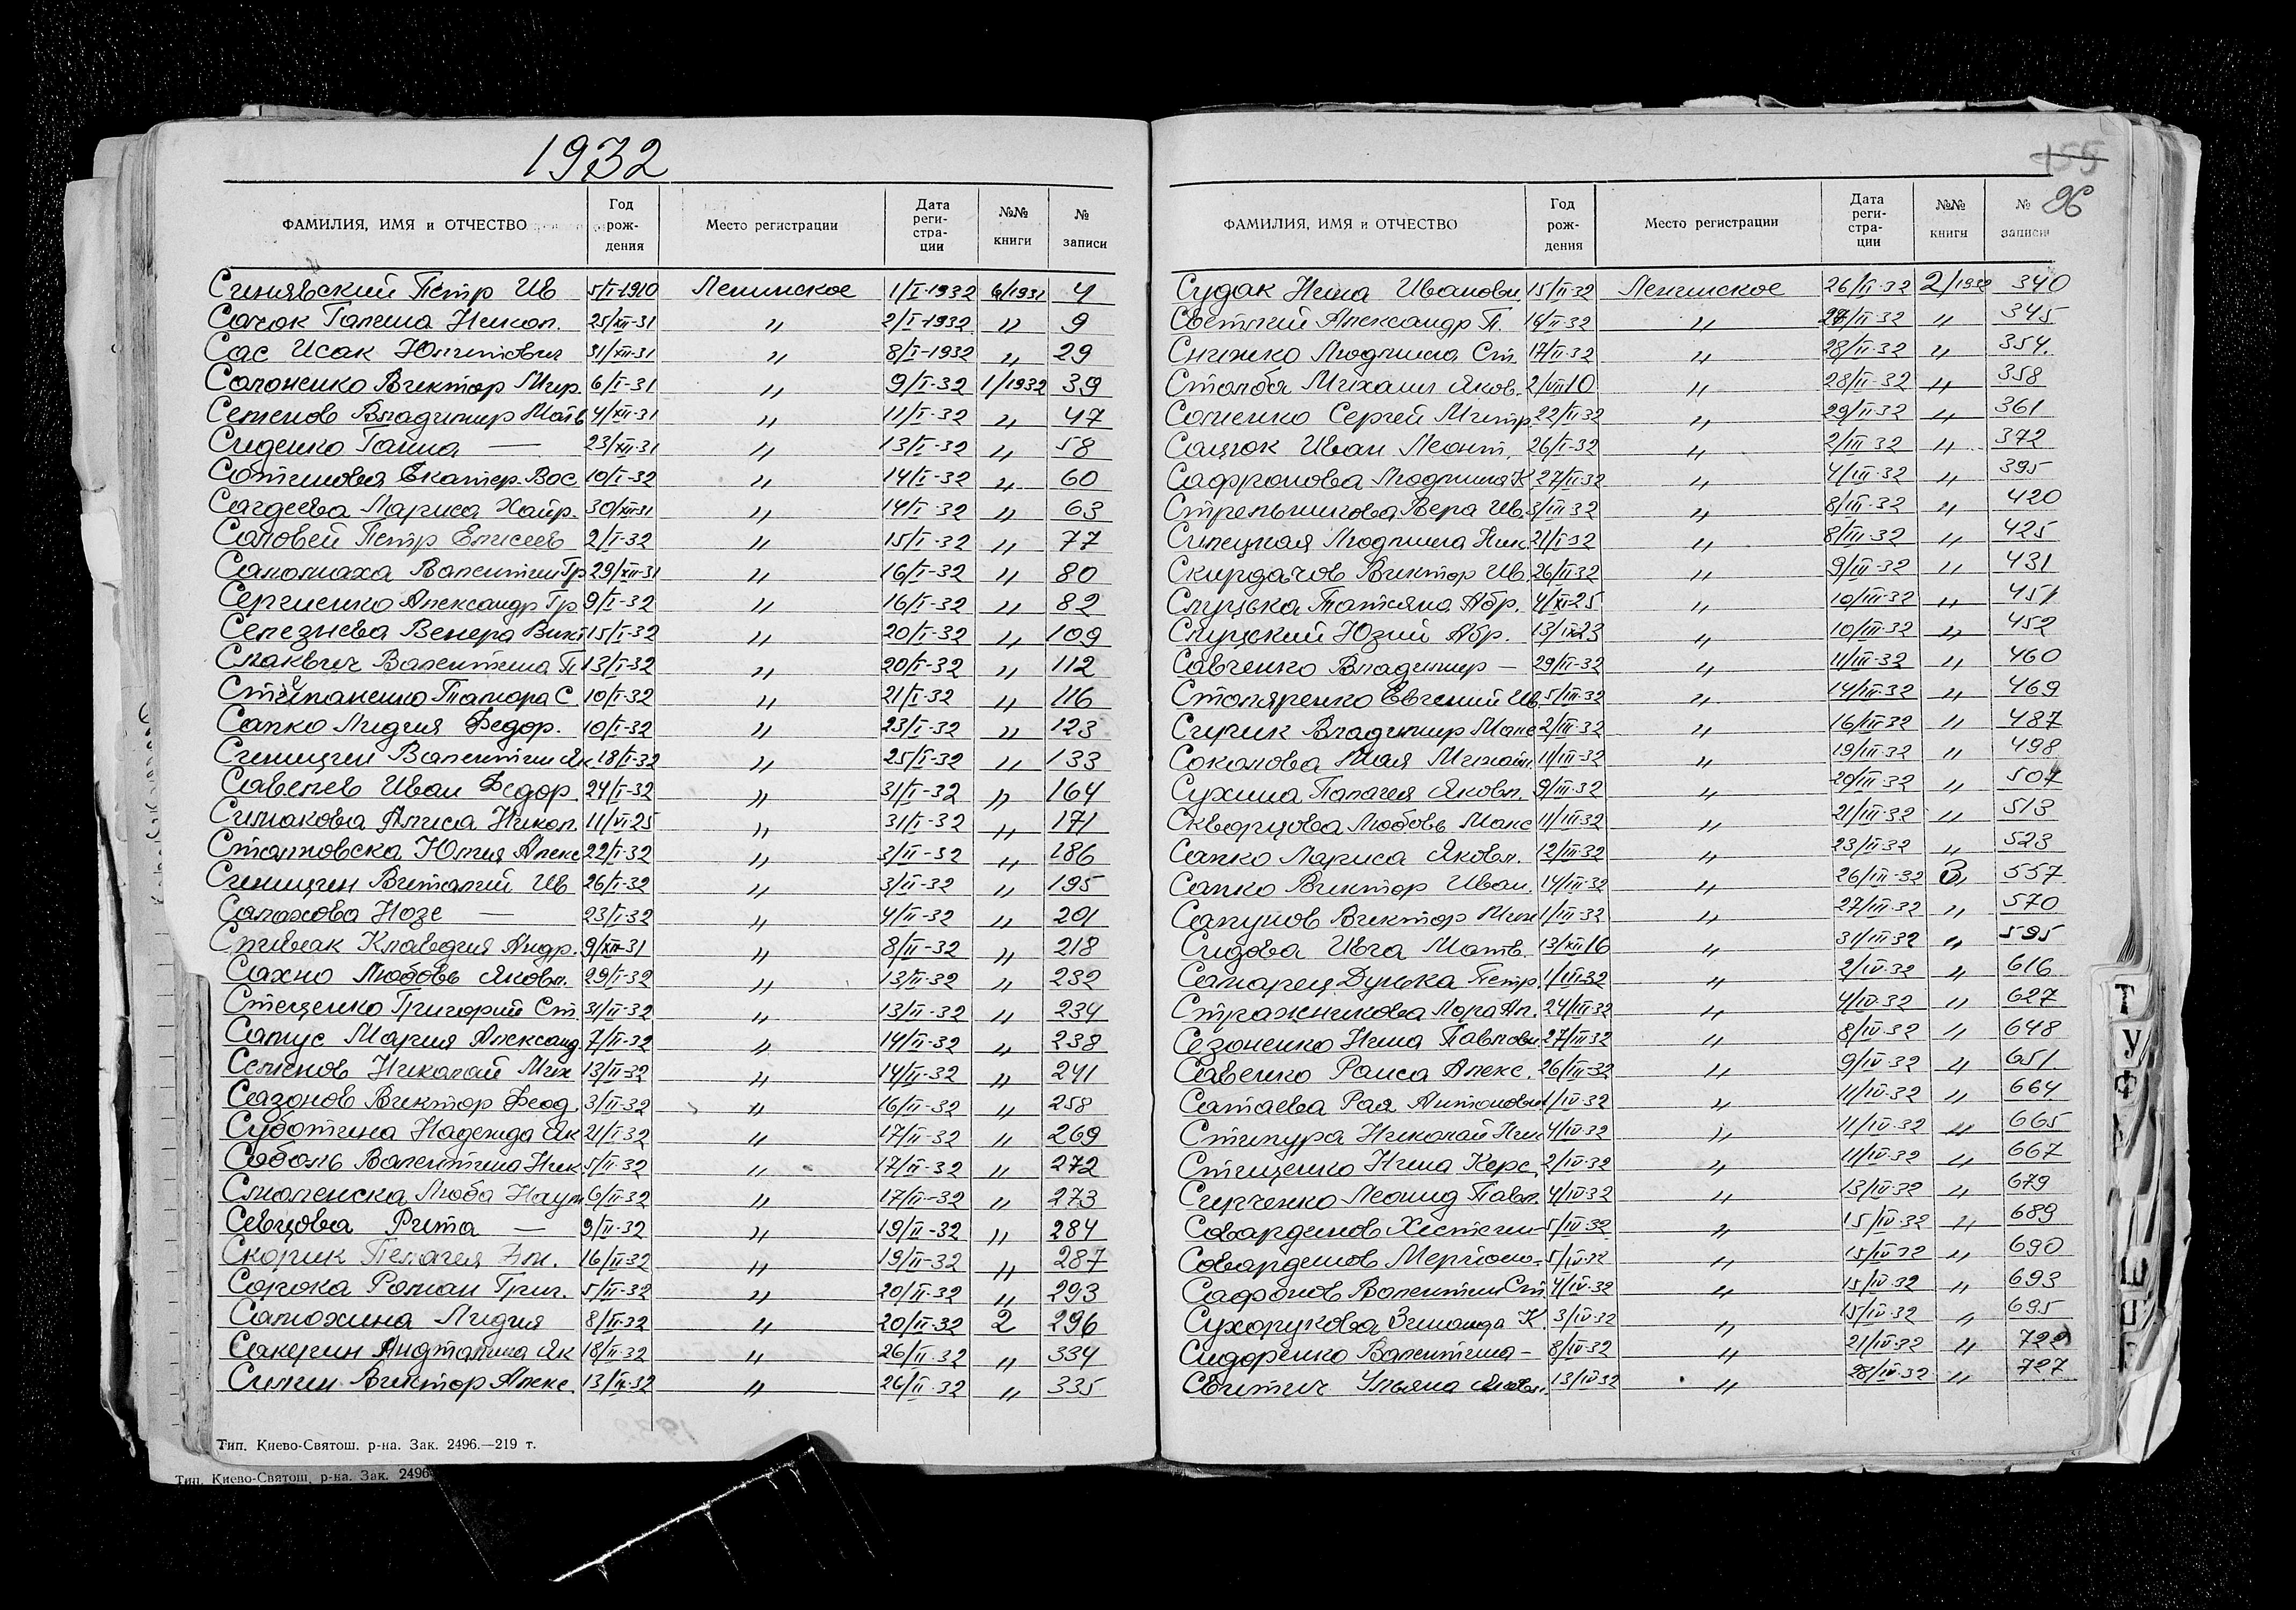 1932
ФАМИЛИЯ, ИМЯ и ОТЧЕСТВО Год рождения Место регистрации Дата регистрации №№ книги № записи
Синявский Петр Ив 5/I-1910 Ленинское 1/I-1932 6/1931 4
Сачок Галина Никол. 25/XII-31 〃 2/I-1932 〃 9
Сас Исак Юлитович 31/XII-31 〃 8/I-1932 〃 29
Солоненко Виктор Мир. 6/I-31 〃 9/I-32 1/1932 39
Семенов Владимир Матв 4/XII-31 〃 11/I-32 〃 47
Сиденко Галина — 23/XII-31 〃 13/I-32 〃 58
Сотникова Екатер. Вас 10/I-32 〃 14/I-32 〃 60
Сагдеева Лариса Хайр. 30/XII-31 〃 14/I-32 〃 63
Соловей Петр Елисеев 2/I-32 〃 15/I-32 〃 77
Саломаха Валентин Гр 29/XII-31 〃 16/I-32 〃 80
Сергиенко Александр Гр 9/I-32 〃 16/I-32 〃 82
Селезнева Венера Викт 15/I-32 〃 20/I-32 〃 109
Валентина П 13/I-32 〃 20/I-32 〃 112
Степаненко Тамара С 10/I-32 〃 21/I-32 〃 116
Сапко Лидия Федор. 10/I-32 〃 23/I-32 〃 123
Синицин Валентин Як 18/I-32 〃 25/I-32 〃 133
Савельев Иван Федор. 24/I-32 〃 31/I-32 〃 164
Симакова Алиса Никол. 11/VI-25 〃 31/I-32 〃 171
Юлия Алекс 22/I-32 〃 3/II-32 〃 186
Синицин Виталий Ив 26/I-32 〃 3/II-32 〃 195
Салахова Нозе — 23/I-32 〃 4/II-32 〃 201
Спивак Клавдия Андр. 9/XII-31 〃 8/II-32 〃 218
Сахно Любовь Яковл. 29/I-32 〃 13/II-32 〃 232
Стеценко Григорий Ст. 31/II-32 〃 13/II-32 〃 234
Сапус Мария Александ 7/II-32 〃 14/II-32 〃 238
Семенов Николай Мих 13/II-32 〃 14/II-32 〃 241
Сазонов Виктор Феод. 3/II-32 〃 16/II-32 〃 258
Суботина Надежда Як 21/I-32 〃 17/II-32 〃 269
Соболь Валентина Ник 5/II-32 〃 17/II-32 〃 272
Смоленска Люба Наум 6/II-32 〃 17/II-32 〃 273
Севцова Рита — 9/II-32 〃 19/II-32 〃 284
Скорик Пелагея Ан. 16/II-32 〃 19/II-32 〃 287
Сорока Роман Григ. 5/II-32 〃 20/II-32 〃 293
Самохина Лидия 8/II-32 〃 20/II-32 2 296
Сакерин Як 18/II-32 〃 26/II-32 〃 334
Силин Виктор Алекс. 13/II-32 〃 26/II-32 〃 335
Тип. Киево-Святош. р-на. Зак. 2496.—219 т.
Тип. Киево-Святош. р-на. Зак. 2496
155
96
ФАМИЛИЯ, ИМЯ и ОТЧЕСТВО Год рождения Место регистрации Дата регистрации №№ книги № записи
Судак Нина Ивановн 15/II-32 Ленинское 26/II-32 2/1932 340
Александр П. 14/II-32 〃 /II-32 〃 345
Снижко Людмила Ст. 17/II-32 〃 28/II-32 〃 354.
Столба Михаил Яков. 2/VII10 〃 28/II-32 〃 358
Соменко Сергей Митр 22/II-32 〃 29/II-32 〃 361
Сацюк Иван Леонт. 26/I-32 〃 2/III-32 〃 372
Сафронова Людмила К 27/II-32 〃 4/III-32 〃 395
Стрельникова Вера Ив. 3/III-32 〃 8/III-32 〃 420
Силецкая Людмила Ник 21/I-32 〃 8/III-32 〃 425
Скирдачов Виктор Ив. 26/II-32 〃 9/III-32 〃 431
Слуцька Татьяна Абр. 4/XI-25 〃 10/III-32 〃 451
Слуцский Юзий Абр. 13/IX23 〃 10/III-32 〃 452
Савченко Владимир — 29/II-32 〃 11/III-32 〃 460
Столяренко Евгений Ив. 5/III-32 〃 14/III-32 〃 469
Сирик Владимир Макс 2/III-32 〃 16/III-32 〃 487
Соколова Мая Михайл. 11/III-32 〃 19/III-32 〃 498
Сухина Палагея Яковл. 9/III-32 〃 20/III-32 〃 507
Скворцова Любовь Макс 11/III-32 〃 21/III-32 〃 513
Сапко Лариса Яковл. 12/III-32 〃 23/II-32 〃 523
Сапко Виктор Иван. 14/III-32 〃 26/III-32 3 557
Сапунов Виктор Мих 1/III-32 〃 27/III-32 〃 570
Сидова Ивга Матв. 13/XII16 〃 31/III-32 〃 595
Саморец Дунька Петр. 1/III-32 〃 2/IV-32 〃 616
Стражникова Лора Ал. 24/III-32 〃 4/IV-32 〃 627
Сезоненко Нина Павловн 27/III-32 〃 8/IV-32 〃 648
Савенко Раиса Алекс. 26/III-32 〃 9/IV-32 〃 651.
Сатаева Рая Антоновн 1/IV-32 〃 11/IV-32 〃 664
Стипура Николай Ник 4/IV-32 〃 11/IV-32 〃 665
Стищенко Нина 2/IV-32 〃 11/IV-32 〃 667
Сирченко Леонид Павл. 4/IV-32 〃 13/IV-32 〃 679
Совардинов 5/IV-32 〃 15/IV-32 〃 689
Совардинов 5/IV-32 〃 15/IV-32 〃 690
Сафонов Валентин Ст 4/IV-32 〃 15/IV-32 〃 693
Сухорукова Зинаида К. 3/IV-32 〃 15/IV-32 〃 695
Сидоренко Валентина — 8/IV-32 〃 21/IV-32 〃 722
Свитич Ульяна Яковл. 13/IV-32 〃 28/IV-32 〃 727
Т
У
Ф
Ш